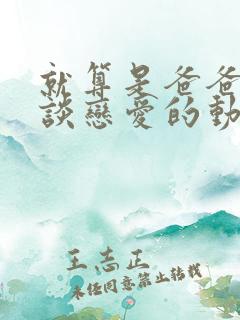 就算是爸爸
談戀愛的動
王志正
未经同意禁止转载